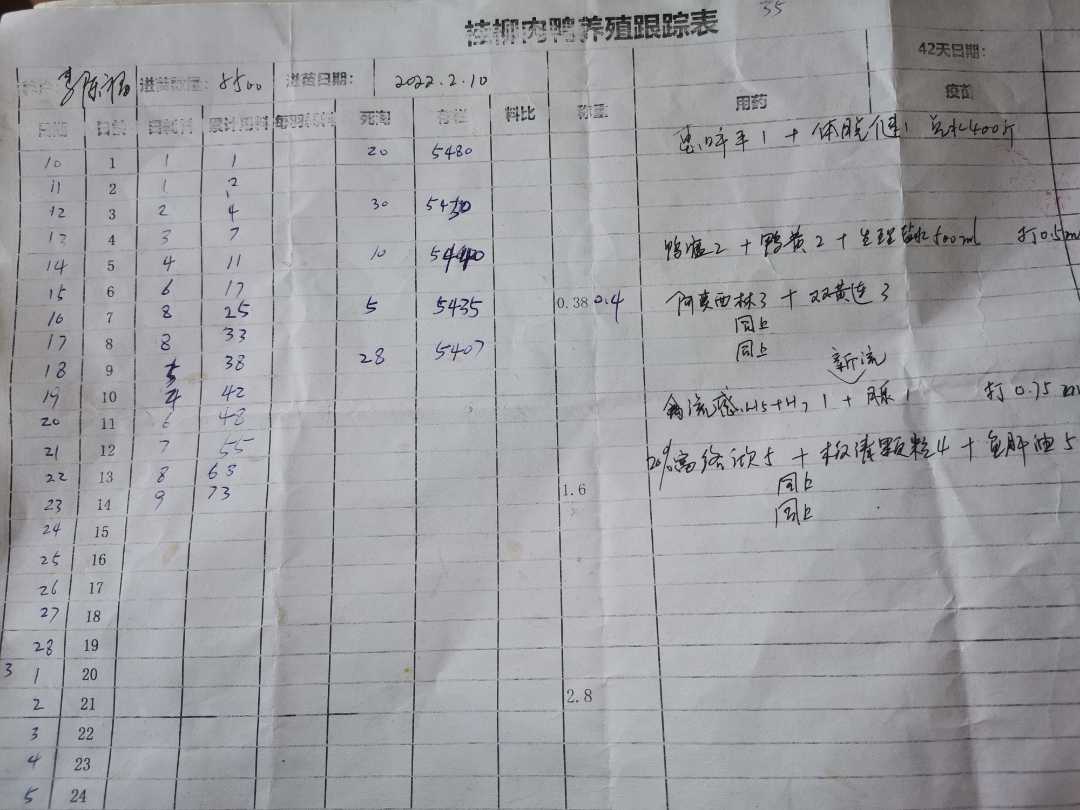 55
桂柳肉鸭养殖跟踪表
进苗数量： 5500 进苗日期： 2022.2.10 42天日期：
日期 日龄 日耗料 累计用料 死淘 存栏 料比 称重 用药 疫苗
10 1 1 1 20 5480 1 + 1 400斤
11 2 1 2
12 3 2 4 30 5450
13 4 3 7 2 + 鸭黄2 + 生理盐水500ml 打0.5ml
14 5 4 11 10 5440
15 6 6 17 0.38 0.4 阿莫西林3 + 双黄连3
16 7 8 25 5 5435 同上
17 8 8 33 同上
18 9 5 38 28 5407 新流
19 10 4 42 禽流感H5+H7 1 + 1 打0.75ml
20 11 6 48
21 12 7 55 5 + 板清颗粒4 + 鱼肝油5
22 13 8 63 同上
23 14 9 73 1.6 同上
24 15
25 16
26 17
27 18
28 19
3 1 20
2 21 2.8
3 22
4 23
5 24